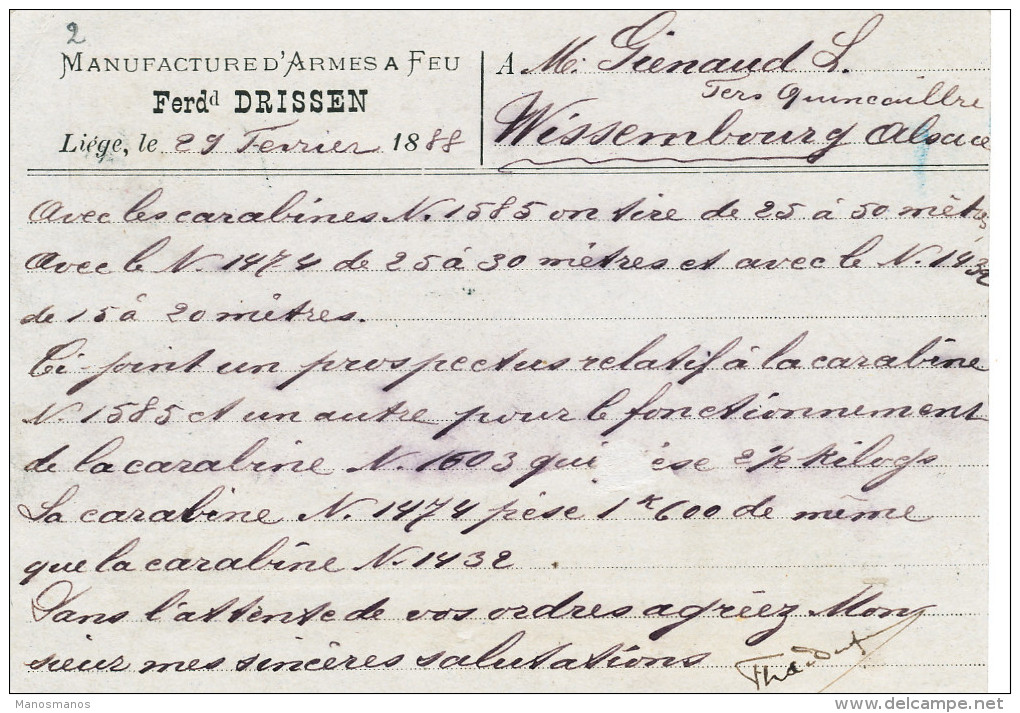 2
MANUFACTURE D'ARMES A FEU
Ferdd DRISSEN
Liége, le 29 Fevrier 1888
A M. Gienaud L.
Fers Quincaillre
Wissembourg Alsace
Avec les carabines N. 1585 on tire de 25 à 50 mètres
Avec le N. 1474 de 25 à 30 mètres et avec le N. 1432
de 15 à 20 mètres.
Ci-joint un prospectus relatif à la carabine
N. 1585 et un autre pour le fonctionnement
de la carabine N. 1603 qui èse 2 1/2 kilogs
La carabine N. 1474 pèse 1k600 de même
que la carabine N. 1432.
Dans l'attente de vos ordres agréez Mon
sieur mes sincères salutations
Manosmanos
www.delcampe.net